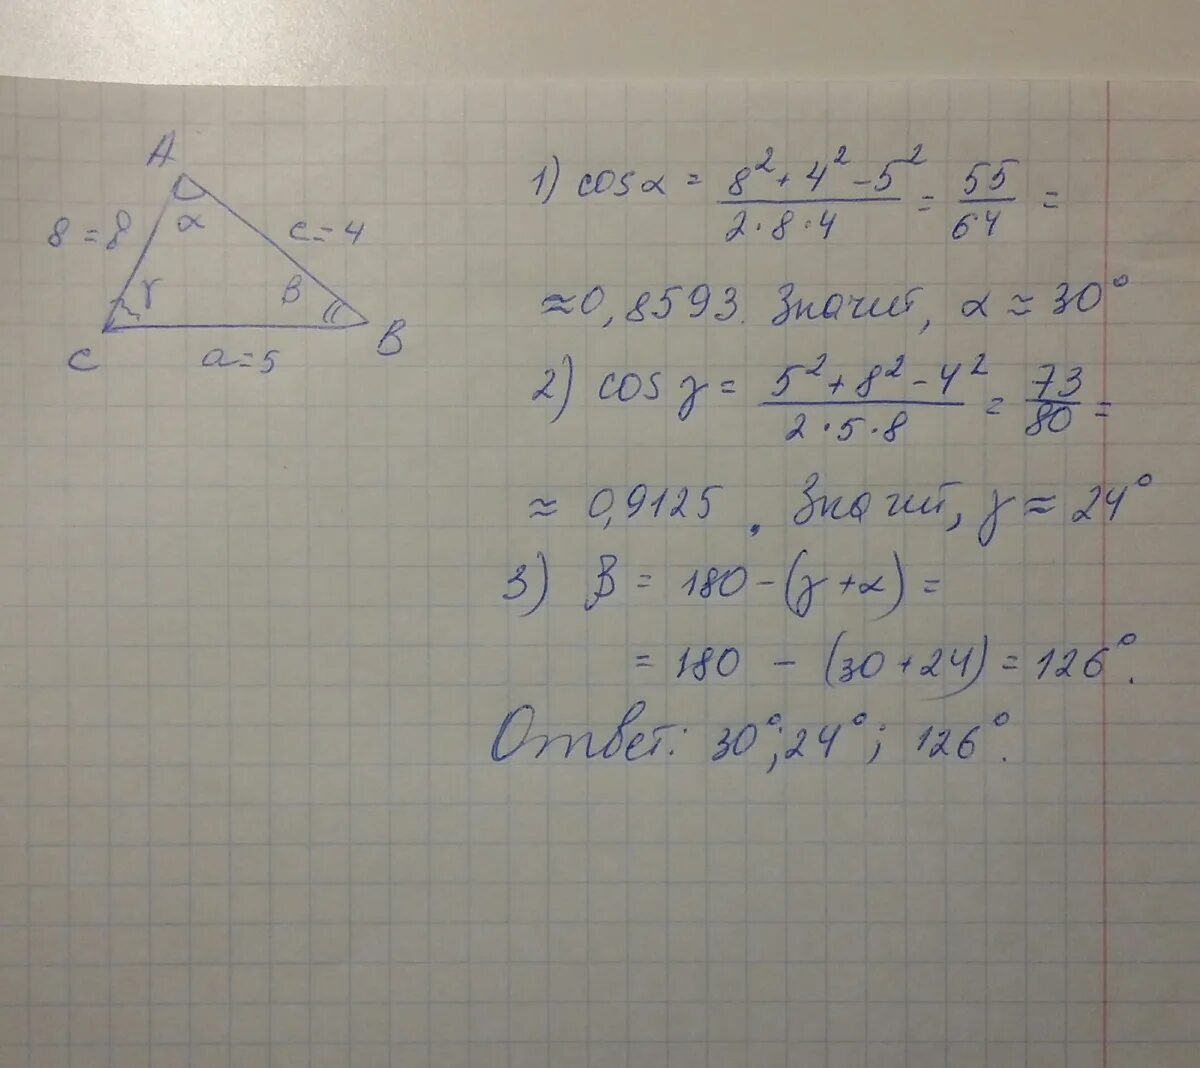 A
8 = 8
α
c = 4
γ
β
C
a = 5
B
1) cos α = (8² + 4² - 5²)/(2·8·4) = 55/64 =
≈ 0,8593. Значит, α ≈ 30°
2) cos γ = (5² + 8² - 4²)/(2·5·8) = 73/80 =
≈ 0,9125. Значит, γ ≈ 24°
3) β = 180 - (γ + α) =
= 180 - (30 + 24) = 126°.
Ответ: 30°; 24°; 126°.